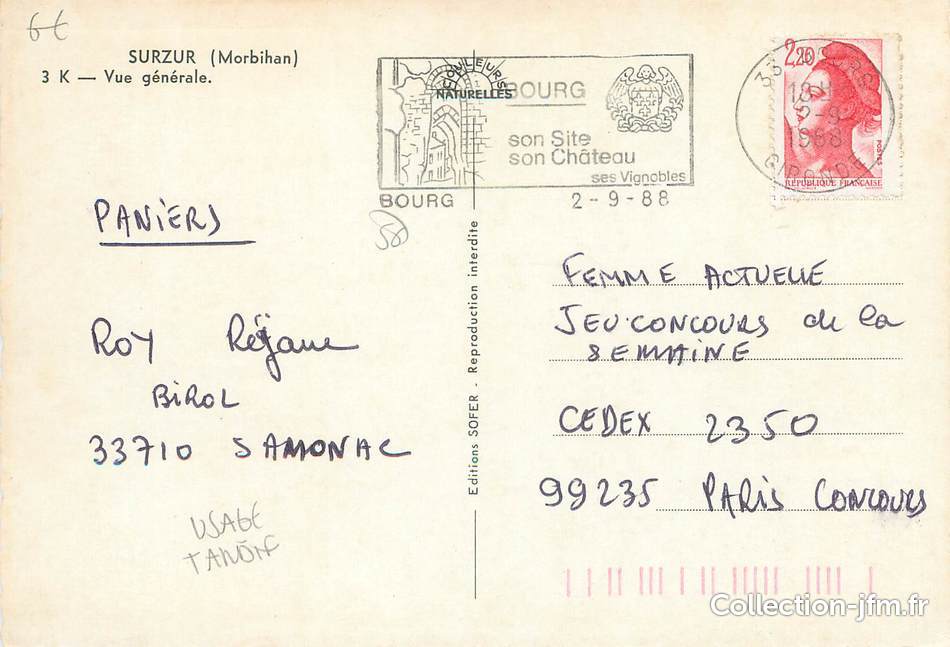 6€
SURZUR (Morbihan)
3 K — Vue générale.
COULEURS
NATURELLES
BOURG
son Site
son Château
ses Vignobles
BOURG
2-9-88
33 BOURG
18H
2-9
1988
GIRONDE
2,20
POSTES
REPUBLIQUE FRANÇAISE
PANIERS
ROY Réjane
BIROL
33710 SAMONAC
USAGE
TARDIF
Editions SOFER - Reproduction interdite
FEMME ACTUELLE
JEU-CONCOURS de la
SEMAINE
CEDEX 2350
99235 PARIS CONCOURS
Collection-jfm.fr